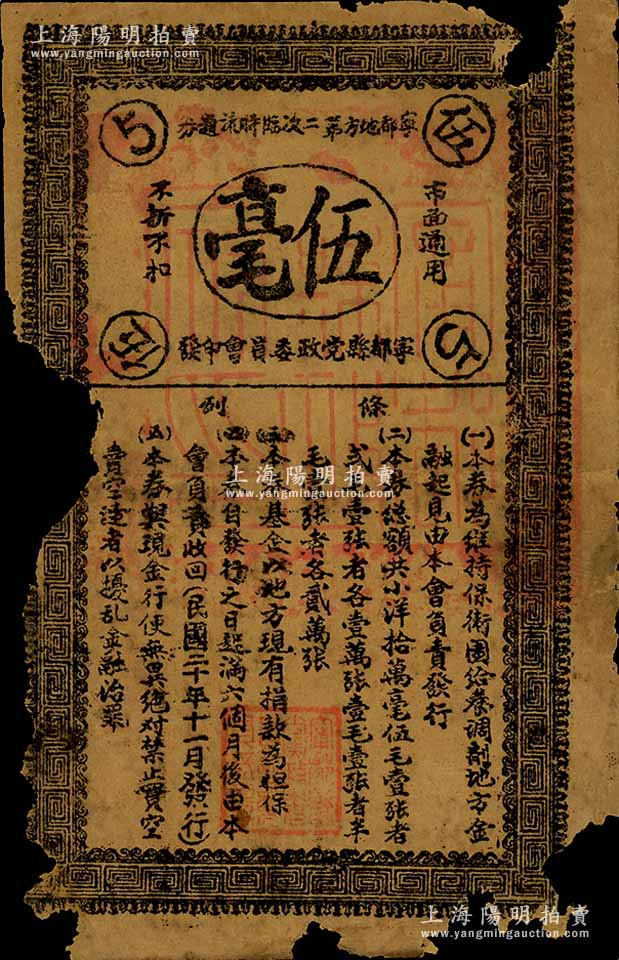 上海陽明拍賣
www.yangmingauction.com
寧都地方第二次臨時流通券
5
伍
市面通用
伍毫
不折不扣
伍
5
寧都縣党政委員會印發
條例
(一)本券為維持保衛團給養調剤地方金
融起見由本會負責發行
(二)本券總額共小洋拾萬毫伍毛壹張者
弍 壹張者各壹萬張壹毛壹張者半
毛壹張者各貳萬張
(三)本 基金以地方現有捐款為担保
(四)本 自發行之日起滿六個月後由本
會負責收回(民國二十年十一月發行)
(五)本券與現金行使無異絕对禁止買空
賣空違者以擾乱金融治罪
上海陽明拍賣
www.yangmingauction.com
上海陽明拍賣
www.yangmingauction.com